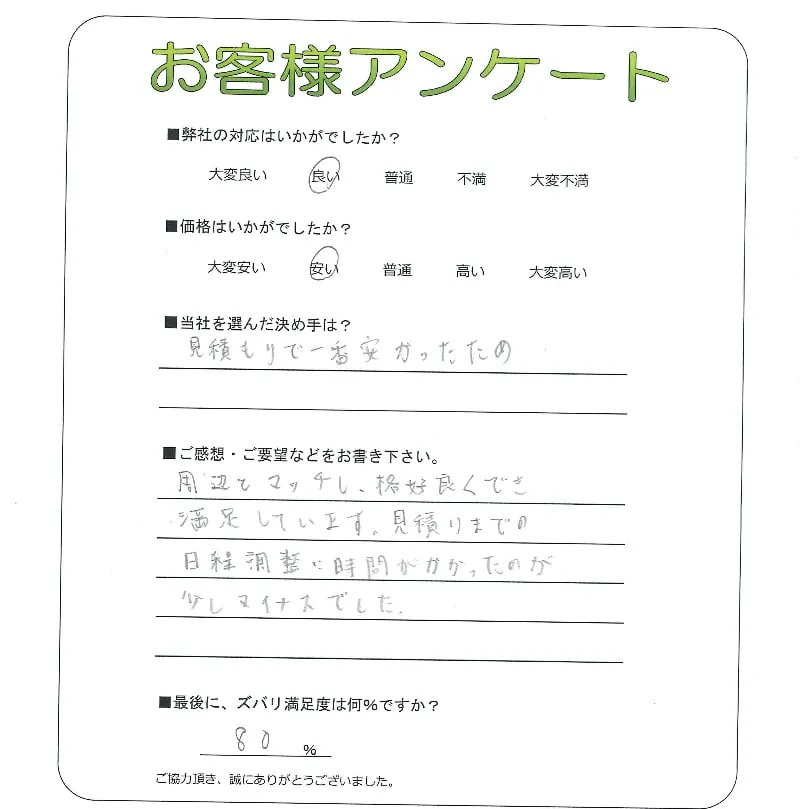 お客様アンケート
■弊社の対応はいかがでしたか？
大変良い 良い 普通 不満 大変不満
■価格はいかがでしたか？
大変安い 安い 普通 高い 大変高い
■当社を選んだ決め手は？
見積もりで一番安かったため
■ご感想・ご要望などをお書き下さい。
周辺とマッチし、格好良くでき
満足しています。見積りまでの
日程調整に時間がかかったのが
少しマイナスでした.
■最後に、ズバリ満足度は何%ですか？
80 %
ご協力頂き、誠にありがとうございました。